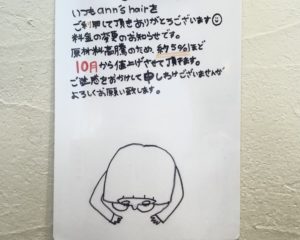 いつもann's hairを
ご利用して頂きありがとうございます
料金の変更のお知らせです。
原材料高騰のため、約5%ほど
10月から値上げさせて頂きます。
ご迷惑をおかけして申しわけございませんが
よろしくお願い致します。